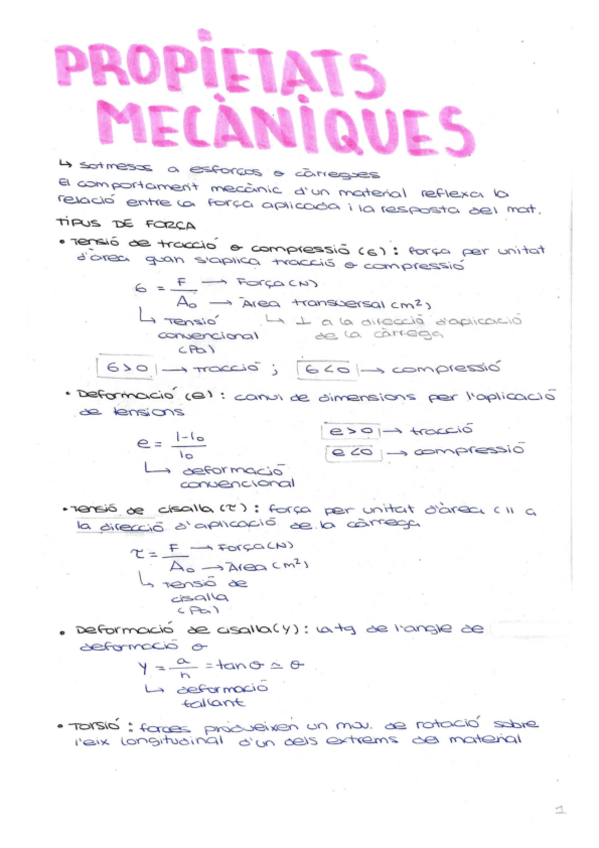 PROPIETATS
MECÀNIQUES
↳ sotmesos a esforços o càrregues
El comportament mecànic d'un material reflexa la
relació entre la força aplicada i la resposta del mat.
TIPUS DE FORÇA
• Tensió de tracció o compressió (σ): força per unitat
d'àrea quan s'aplica tracció o compressió
σ = F / A₀
F → Força (N)
A₀ → Àrea transversal (m²)
↳ Tensió
convencional
(Pa)
↳ ⊥ a la direcció d'aplicació
de la càrrega
σ>0 → tracció ; σ<0 → compressió
• Deformació (e): canvi de dimensions per l'aplicació
de tensions
e = l-l₀ / l₀
↳ deformació
convencional
e>0 → tracció
e<0 → compressió
• Tensió de cisalla (τ): força per unitat d'àrea ( || a
la direcció d'aplicació de la càrrega
τ = F / A₀
F → Força (N)
A₀ → Àrea (m²)
↳ Tensió de
cisalla
(Pa)
• Deformació de cisalla (γ): la tg de l'angle de
deformació θ
γ = a / h = tan θ ≃ θ
↳ deformació
tallant
• Torsió: forces produeixen un mov. de rotació sobre
l'eix longitudinal d'un dels extrems del material
1